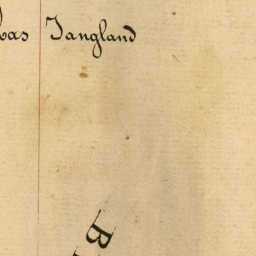 bas Jangland
B